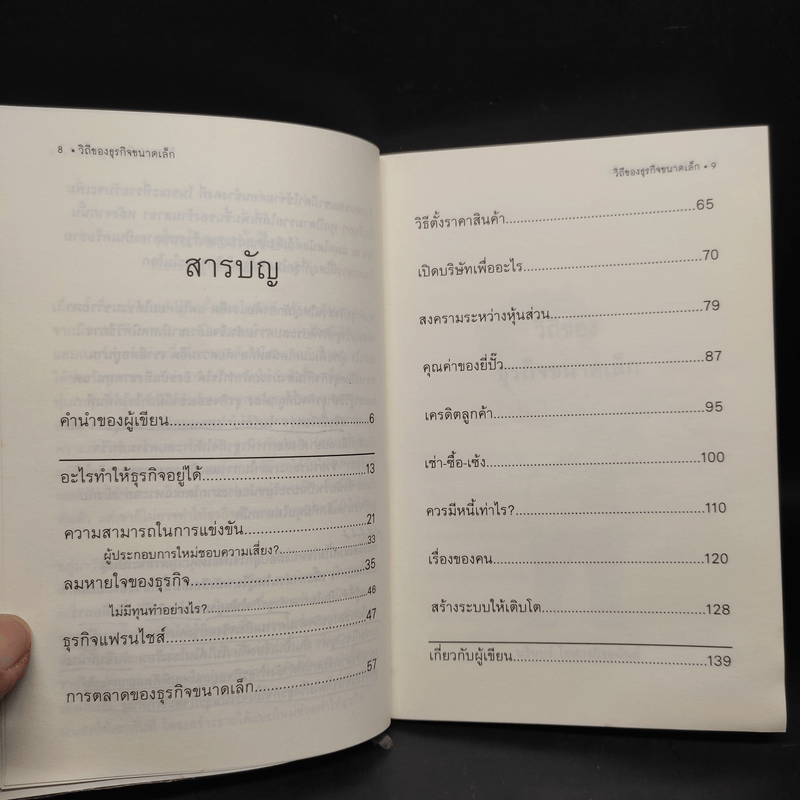 8 • วิถีของธุรกิจขนาดเล็ก
สารบัญ
คำนำของผู้เขียน...............................................6
อะไรทำให้ธุรกิจอยู่ได้...............................................13
ความสามารถในการแข่งขัน...............................................21
ผู้ประกอบการใหม่ชอบความเสี่ยง?...............................................33
ลมหายใจของธุรกิจ...............................................35
ไม่มีทุนทำอย่างไร?...............................................46
ธุรกิจแฟรนไชส์...............................................47
การตลาดของธุรกิจขนาดเล็ก...............................................57
วิถีของธุรกิจขนาดเล็ก • 9
วิธีตั้งราคาสินค้า...............................................65
เปิดบริษัทเพื่ออะไร...............................................70
สงครามระหว่างหุ้นส่วน...............................................79
คุณค่าของยี่ปั๊ว...............................................87
เครดิตลูกค้า...............................................95
เช่า-ซื้อ-เซ้ง...............................................100
ควรมีหนี้เท่าไร?...............................................110
เรื่องของคน...............................................120
สร้างระบบให้เติบโต...............................................128
เกี่ยวกับผู้เขียน...............................................139